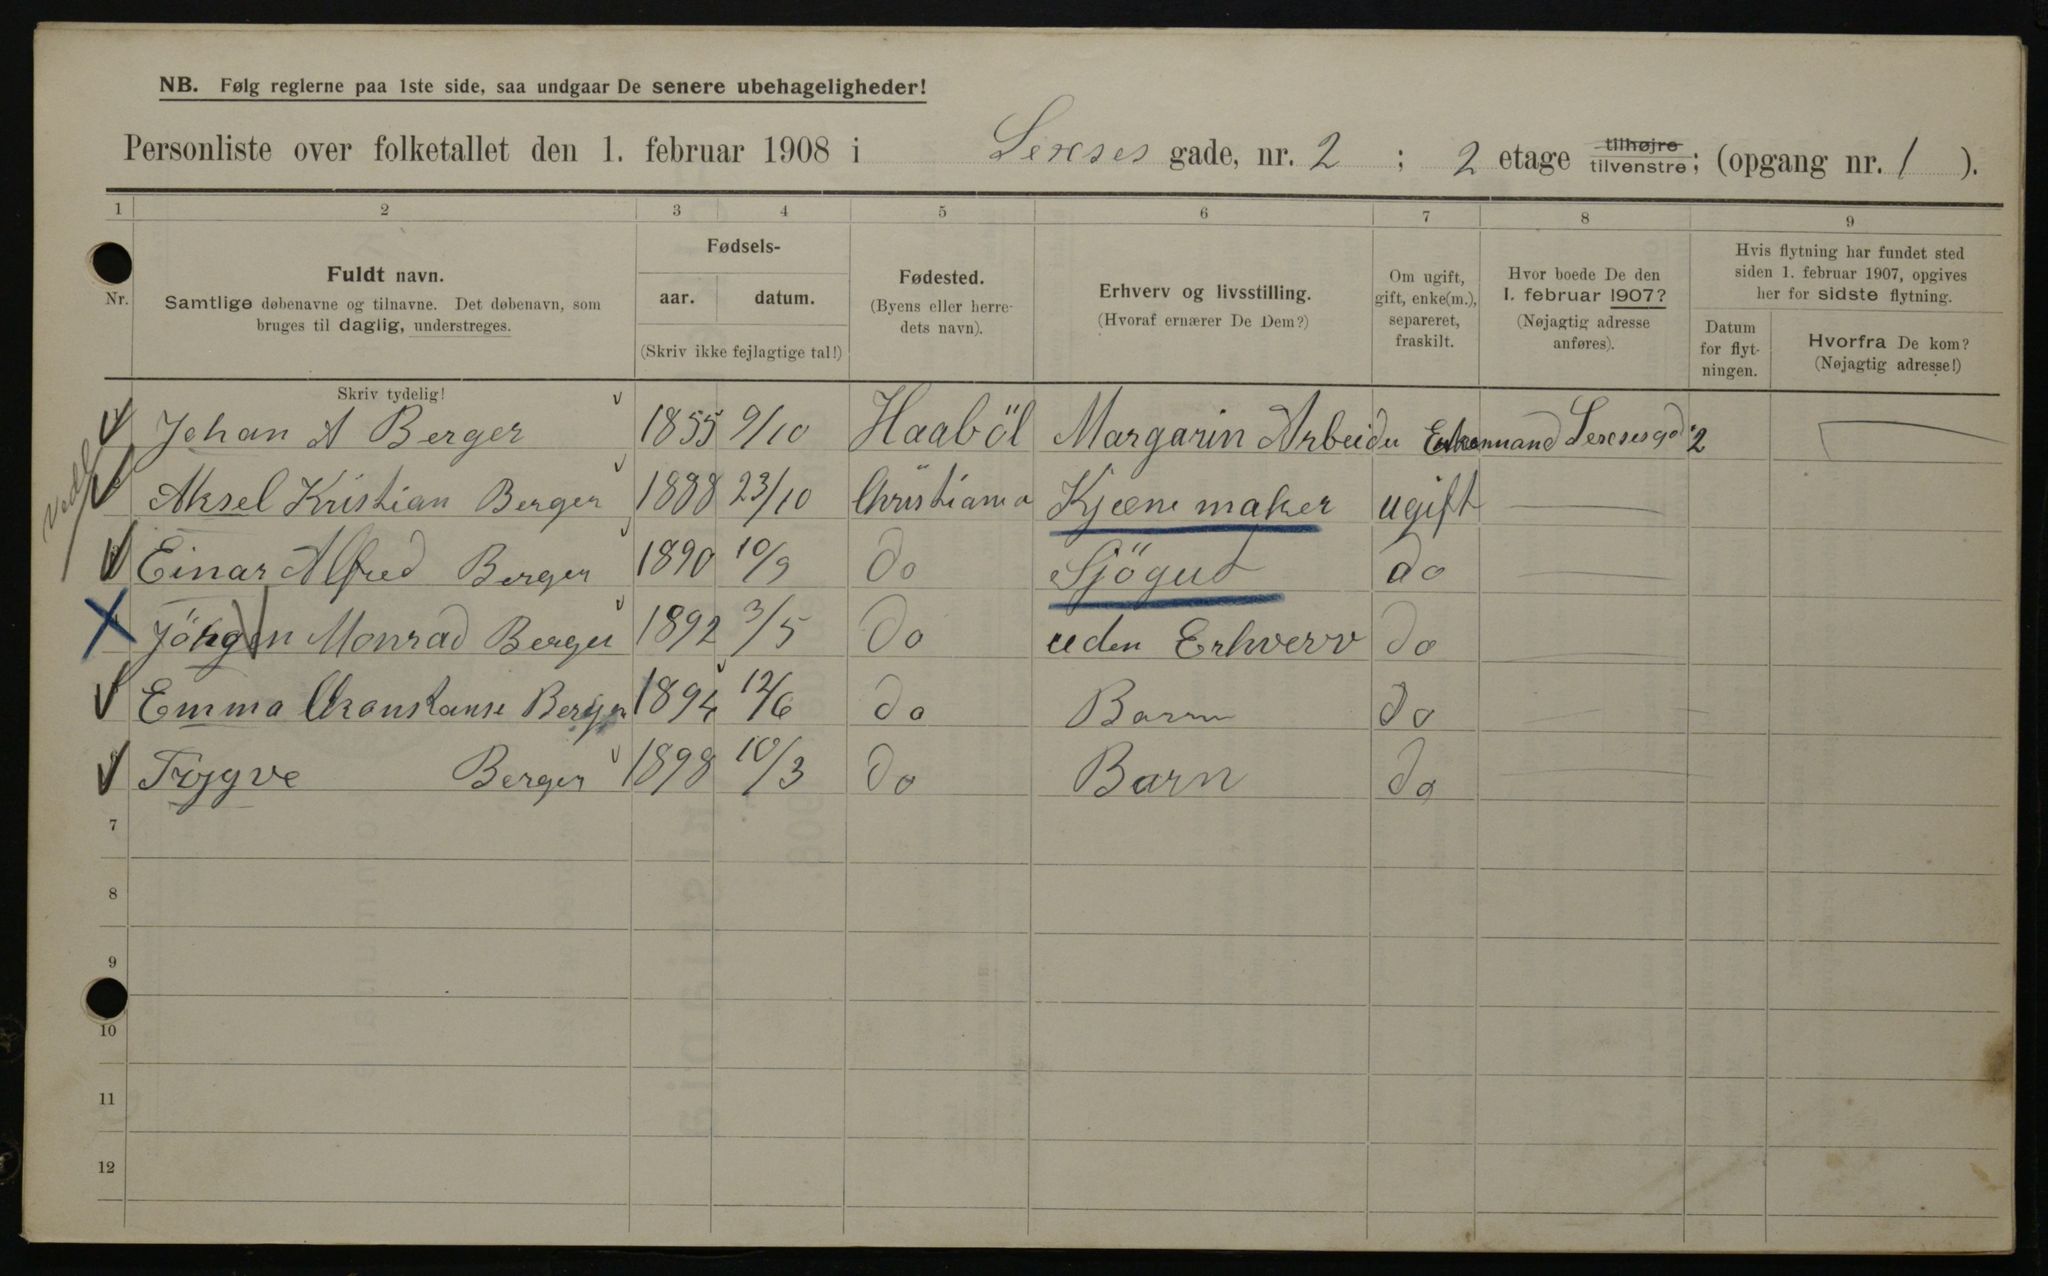 NB. Følg reglerne paa 1ste side, saa undgaar De senere ubehageligheder!
Personliste over folketallet den 1. februar 1908 i Sexses gade, nr. 2 ; 2 etage tilhøjre tilvenstre; (opgang nr. 1 ).
1 2 3 4 5 6 7 8 9
Nr.
Fuldt navn.
Samtlige døbenavne og tilnavne. Det døbenavn, som
bruges til daglig, understreges.
Skriv tydelig!
Fødsels-
aar. datum.
(Skriv ikke fejlagtige tal!)
Fødested.
(Byens eller herre-
dets navn).
Erhverv og livsstilling.
(Hvoraf ernærer De Dem?)
Om ugift,
gift, enke(m.),
separeret,
fraskilt.
Hvor boede De den
1. februar 1907?
(Nøjagtig adresse
anføres).
Hvis flytning har fundet sted
siden 1. februar 1907, opgives
her for sidste flytning.
Datum
for flyt-
ningen.
Hvorfra De kom?
(Nøjagtig adresse!)
Johan A Berger 1855 9/10 Haaböl Margarin Arbeider Enkemand Sexsesgd 2
Aksel Kristian Berger 1888 23/10 Christiania Kjæne maker ugift
Einar Alfred Berger 1890 10/9 do Sjögut do
Jörgen Monrad Berger 1892 3/5 do uden Erhverv do
Emma Konstanse Berger 1894 12/6 do Barn do
Trygve Berger 1898 10/3 do Barn do
7
8
9
10
11
12